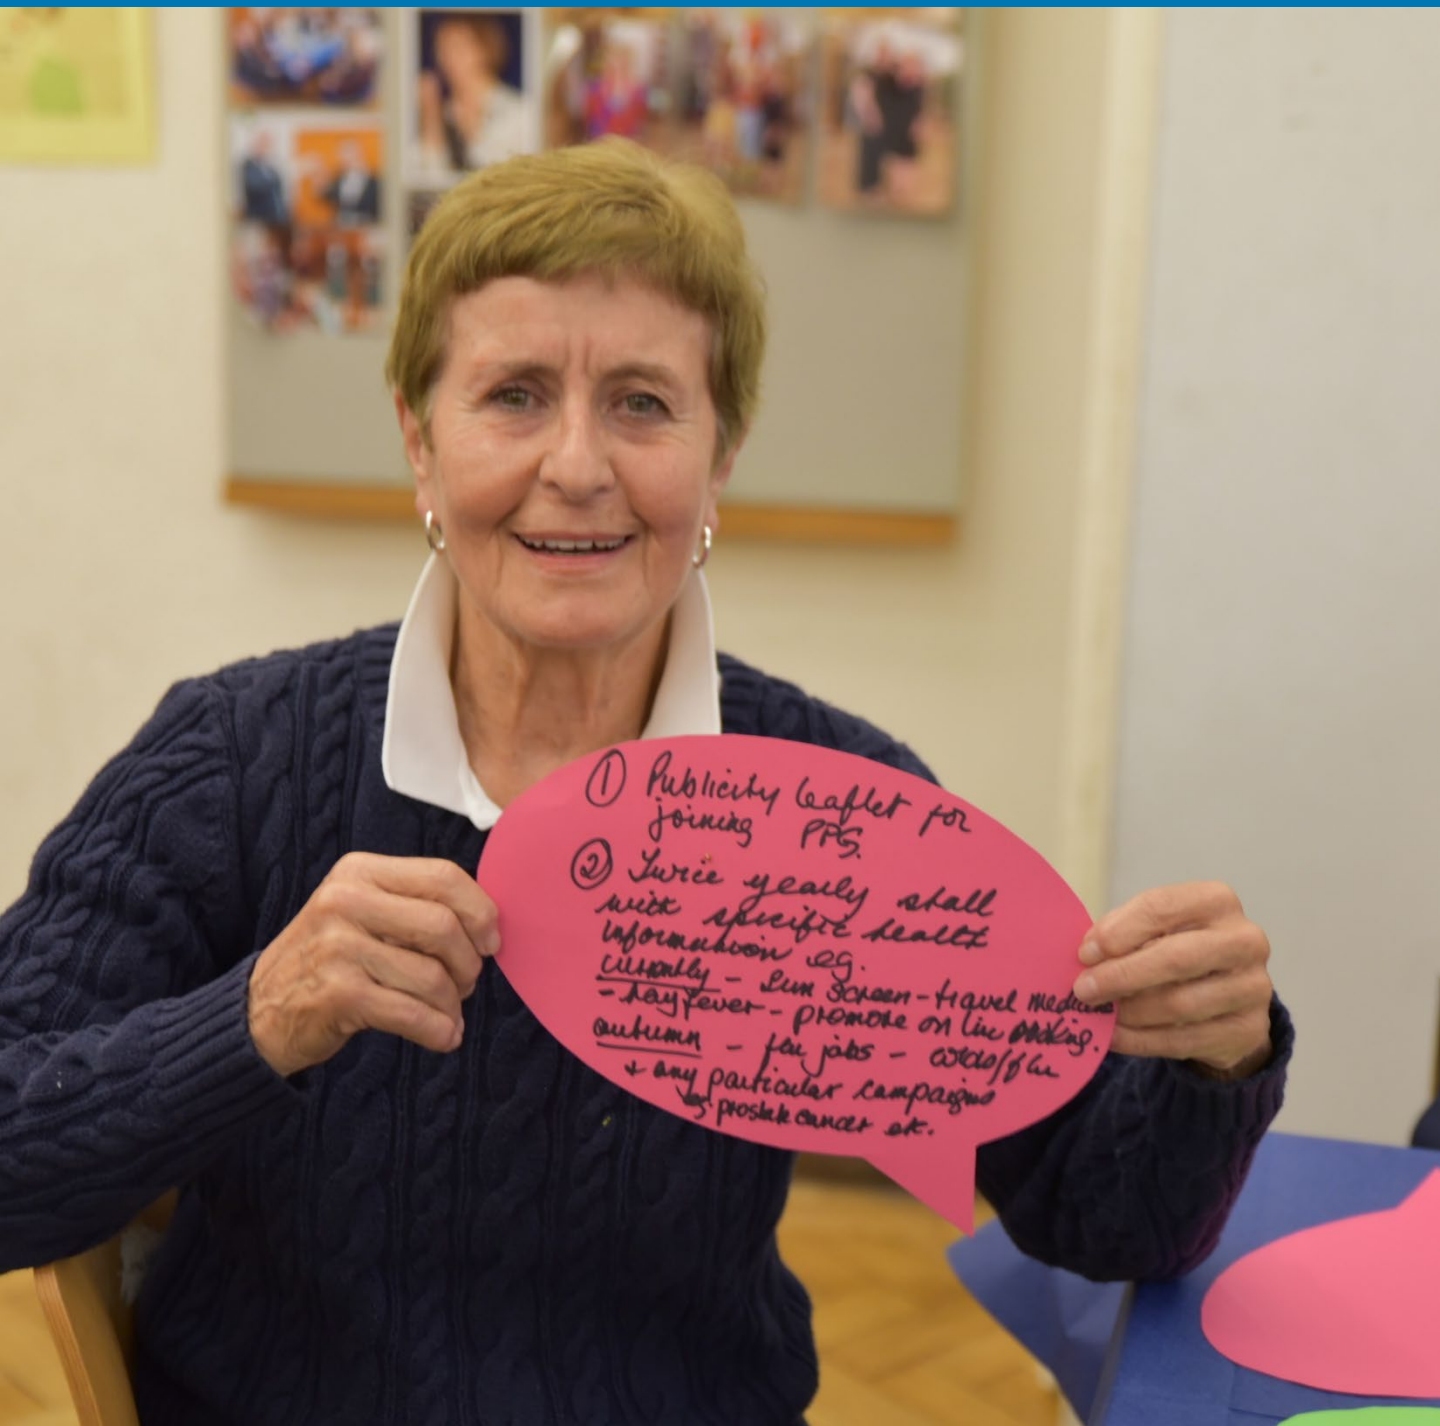 ① Publicity leaflet for
joining PPG.
② Twice yearly stall
with specific health
information eg.
currently – Sun Screen – travel medicine
– hayfever – promote on line booking.
autumn – flu jabs – colds/flu
+ any particular campaigns
eg. prostate cancer etc.